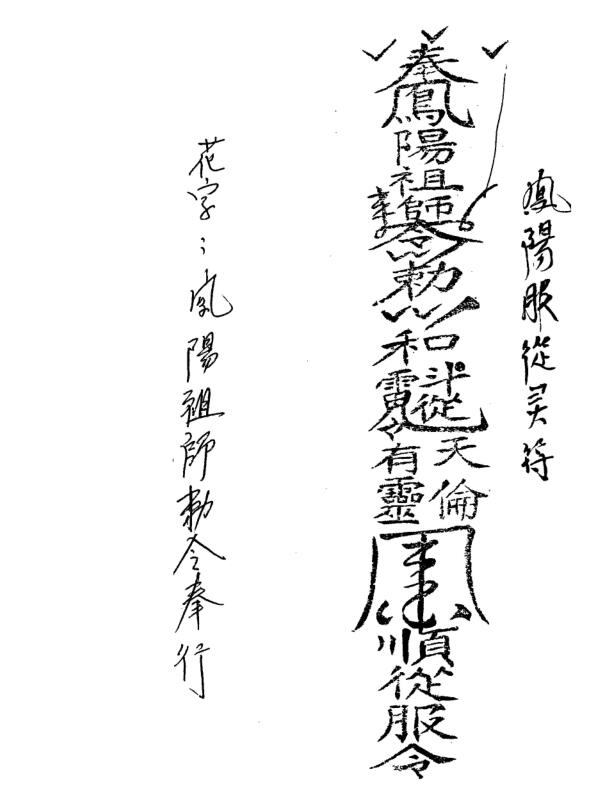 鳳陽服從灵符
奉鳳陽祖師
令
勅
和
斗從
雷令
天倫
有靈
順從服令
花字：鳳陽祖師勅令奉行